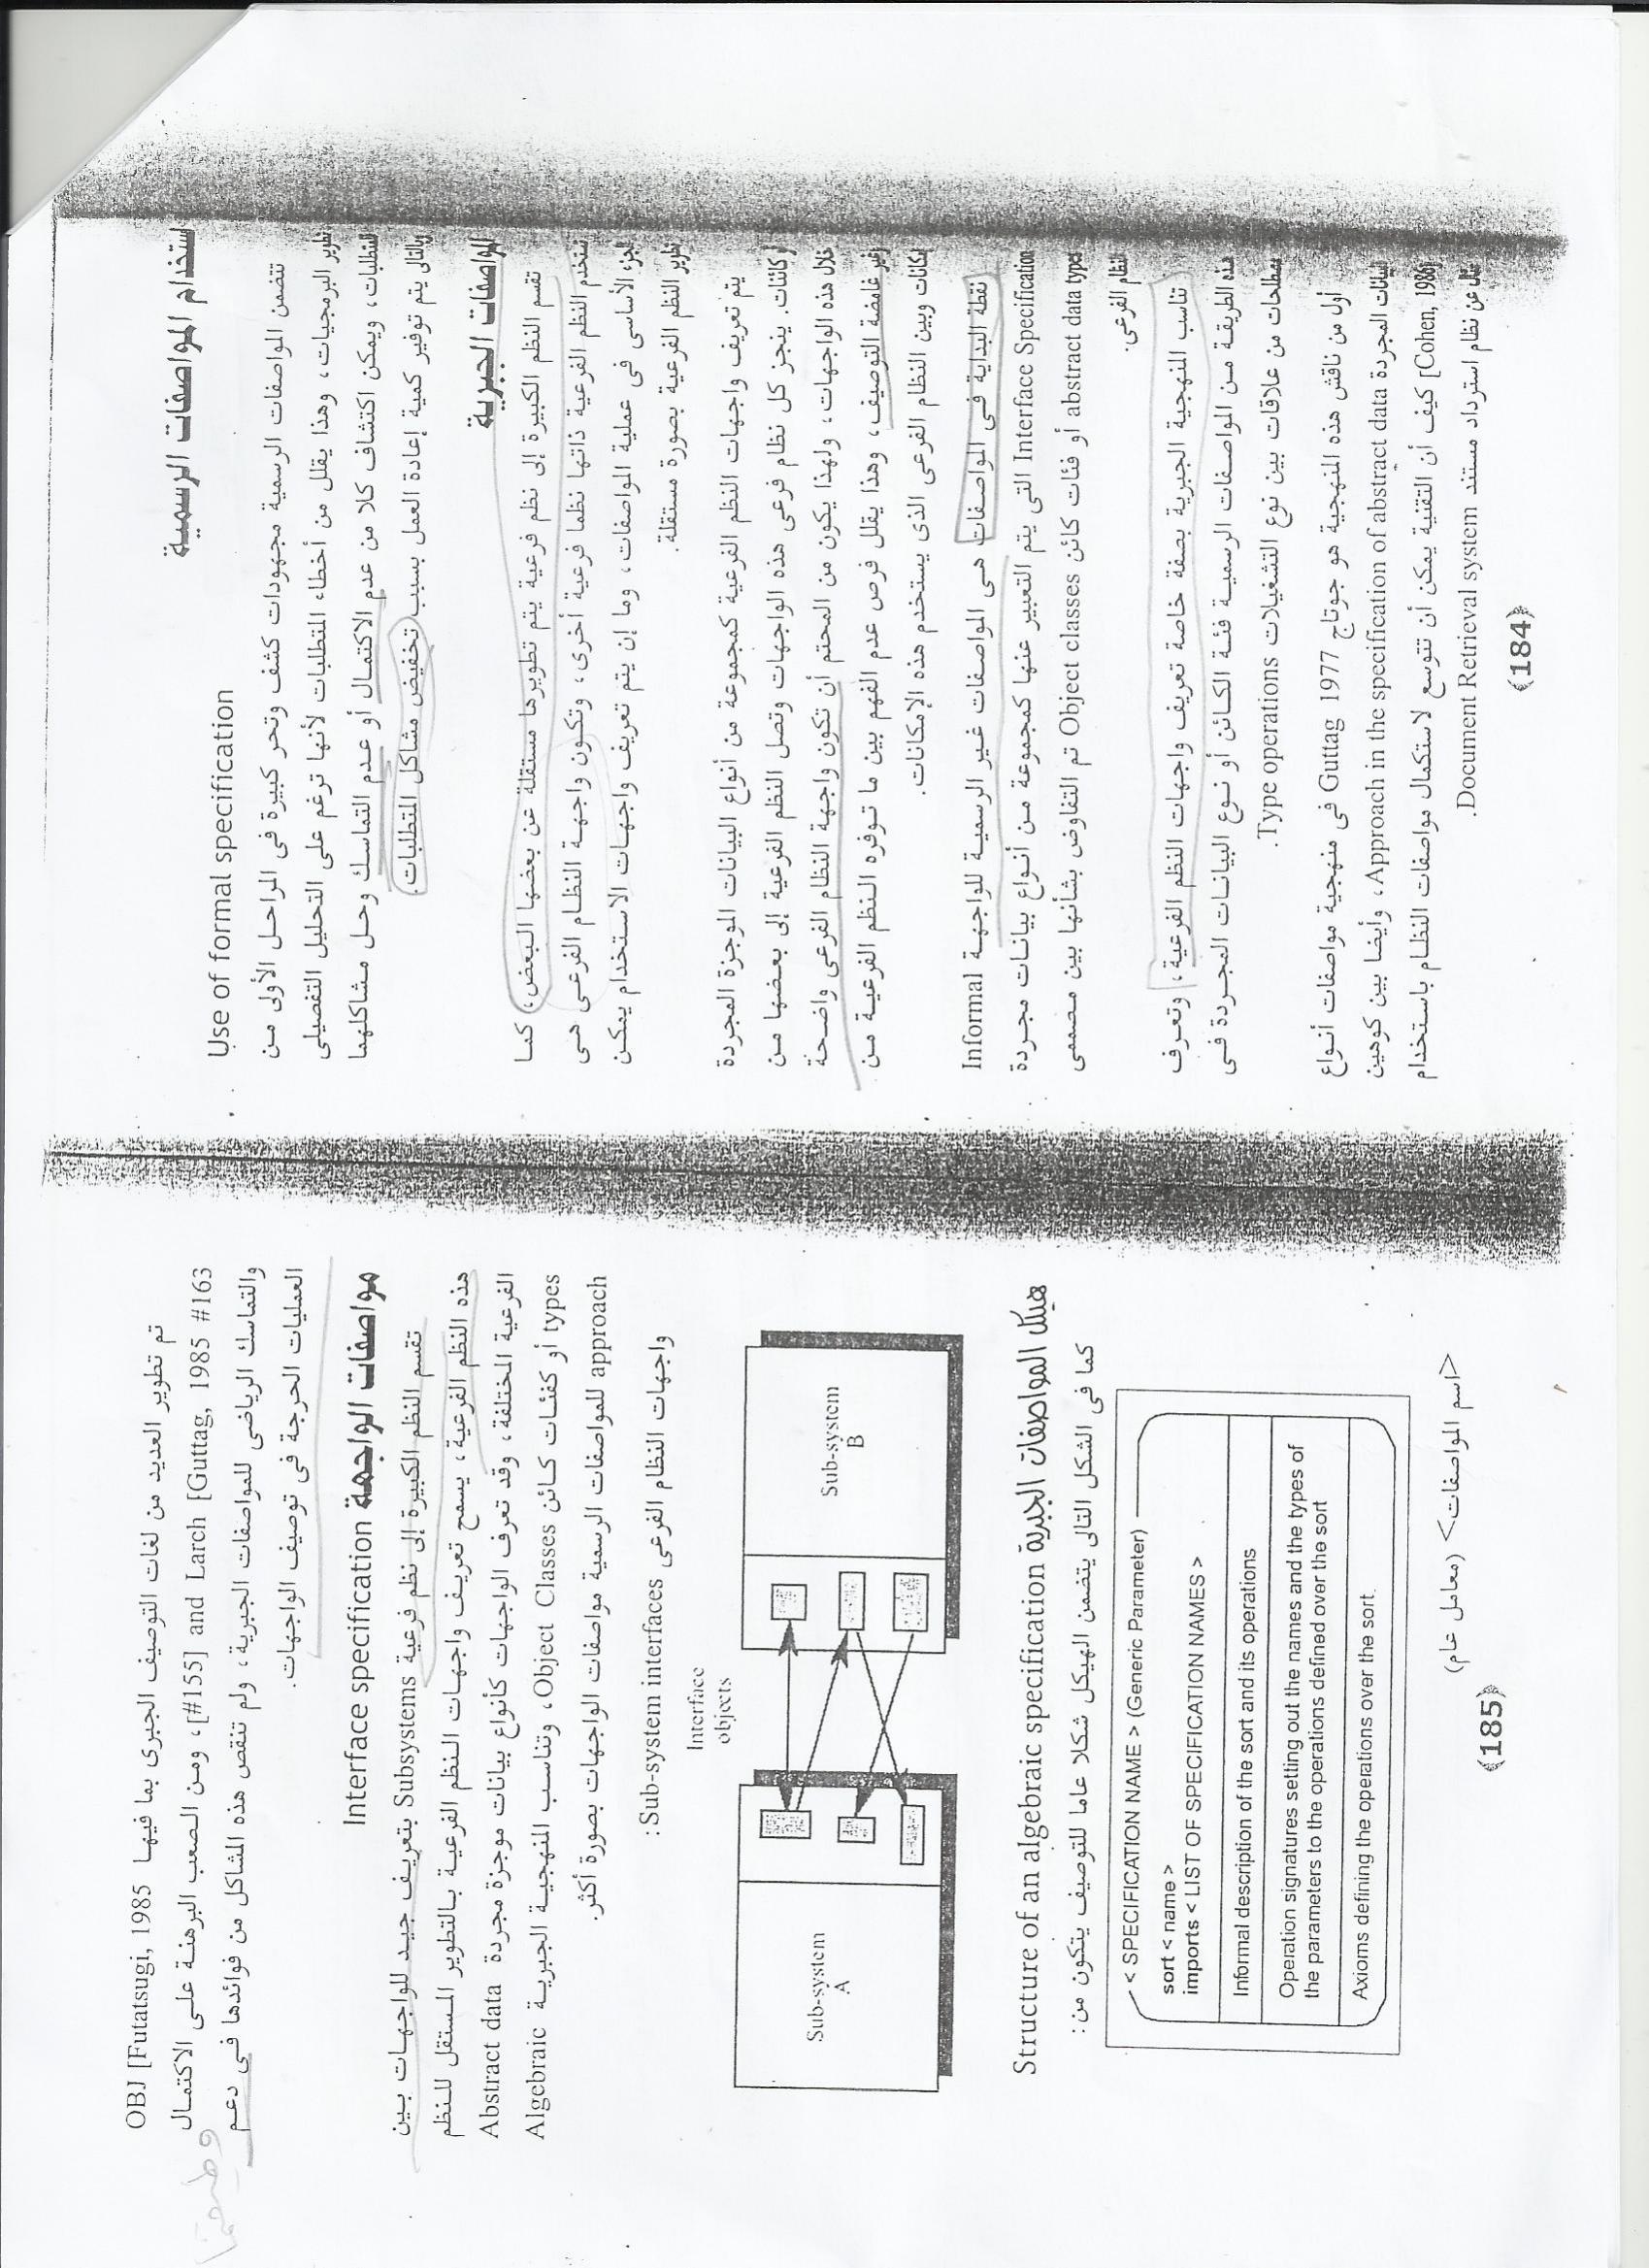 استخدام المواصفات الرسمية
Use of formal specification
تتضمن المواصفات الرسمية مجهودات كشف وتحر كبيرة فى المراحل الأولى من
تطوير البرمجيات، وهذا يقلل من أخطاء المتطلبات لأنها ترغم على التحليل التفصيلى
للمتطلبات، ويمكن اكتشاف كلا من عدم الاكتمال أو عدم التماسك وحل مشاكلهما
وبالتالى يتم توفير كمية إعادة العمل بسبب تخفيض مشاكل المتطلبات.
المواصفات الجبرية
تقسم النظم الكبيرة إلى نظم فرعية يتم تطويرها مستقلة عن بعضها البعض، كما
تستخدم النظم الفرعية ذاتها نظما فرعية أخرى، وتكون واجهة النظام الفرعى هى
الجزء الأساسى فى عملية المواصفات، وما إن يتم تعريف واجهات الاستخدام يمكن
تطوير النظم الفرعية بصورة مستقلة.
يتم تعريف واجهات النظم الفرعية كمجموعة من أنواع البيانات الموجزة المجردة
أو كائنات. ينجز كل نظام فرعى هذه الواجهات وتصل النظم الفرعية إلى بعضها من
خلال هذه الواجهات، ولهذا يكون من المحتم أن تكون واجهة النظام الفرعى واضحة
وغير غامضة التوصيف، وهذا يقلل فرص عدم الفهم بين ما توفره النظم الفرعية من
إمكانات وبين النظام الفرعى الذى يستخدم هذه الإمكانات.
نقطة البداية فى المواصفات هى المواصفات غير الرسمية للواجهة Informal
Interface Specification التى يتم التعبير عنها كمجموعة من أنواع بيانات مجردة
abstract data type أو فئات كائن Object classes تم التفاوض بشأنها بين مصممى
النظام الفرعى.
تناسب المنهجية الجبرية بصفة خاصة تعريف واجهات النظم الفرعية، وتعرف
هذه الطريقة من المواصفات الرسمية فئة الكائن أو نوع البيانات المجردة فى
مصطلحات من علاقات بين نوع التشغيلات Type operations.
أول من ناقش هذه المنهجية هو جوتاج Guttag 1977 فى منهجية مواصفات أنواع
البيانات المجردة Approach in the specification of abstract data، وأيضا بين كوهين
[Cohen, 1986] كيف أن التقنية يمكن أن تتوسع لاستكمال مواصفات النظام باستخدام
مثال عن نظام استرداد مستند Document Retrieval system.
﴿184﴾
تم تطوير العديد من لغات التوصيف الجبرى بما فيها OBJ [Futatsugi, 1985
#163] and Larch [Guttag, 1985 #155]، ومن الصعب البرهنة على الاكتمال
والتماسك الرياضى للمواصفات الجبرية، ولم تنقص هذه المشاكل من فوائدها فى دعم
العمليات الحرجة فى توصيف الواجهات.
مواصفات الواجهة Interface specification
تقسم النظم الكبيرة إلى نظم فرعية Subsystems بتعريف جيد للواجهات بين
هذه النظم الفرعية، يسمح تعريف واجهات النظم الفرعية بالتطوير المستقل للنظم
الفرعية المختلفة، وقد تعرف الواجهات كأنواع بيانات موجزة مجردة Abstract data
types أو كفئات كائن Object Classes، وتناسب المنهجية الجبرية Algebraic
approach للمواصفات الرسمية مواصفات الواجهات بصورة أكثر.
واجهات النظام الفرعى Sub-system interfaces:
Interface
objects
Sub-system
A
Sub-system
B
هيكل المواصفات الجبرية Structure of an algebraic specification
كما فى الشكل التالى يتضمن الهيكل شكلا عاما للتوصيف يتكون من:
< SPECIFICATION NAME > (Generic Parameter)
sort < name >
imports < LIST OF SPECIFICATION NAMES >
Informal description of the sort and its operations
Operation signatures setting out the names and the types of
the parameters to the operations defined over the sort
Axioms defining the operations over the sort
<اسم المواصفات> (معامل عام)
﴿185﴾